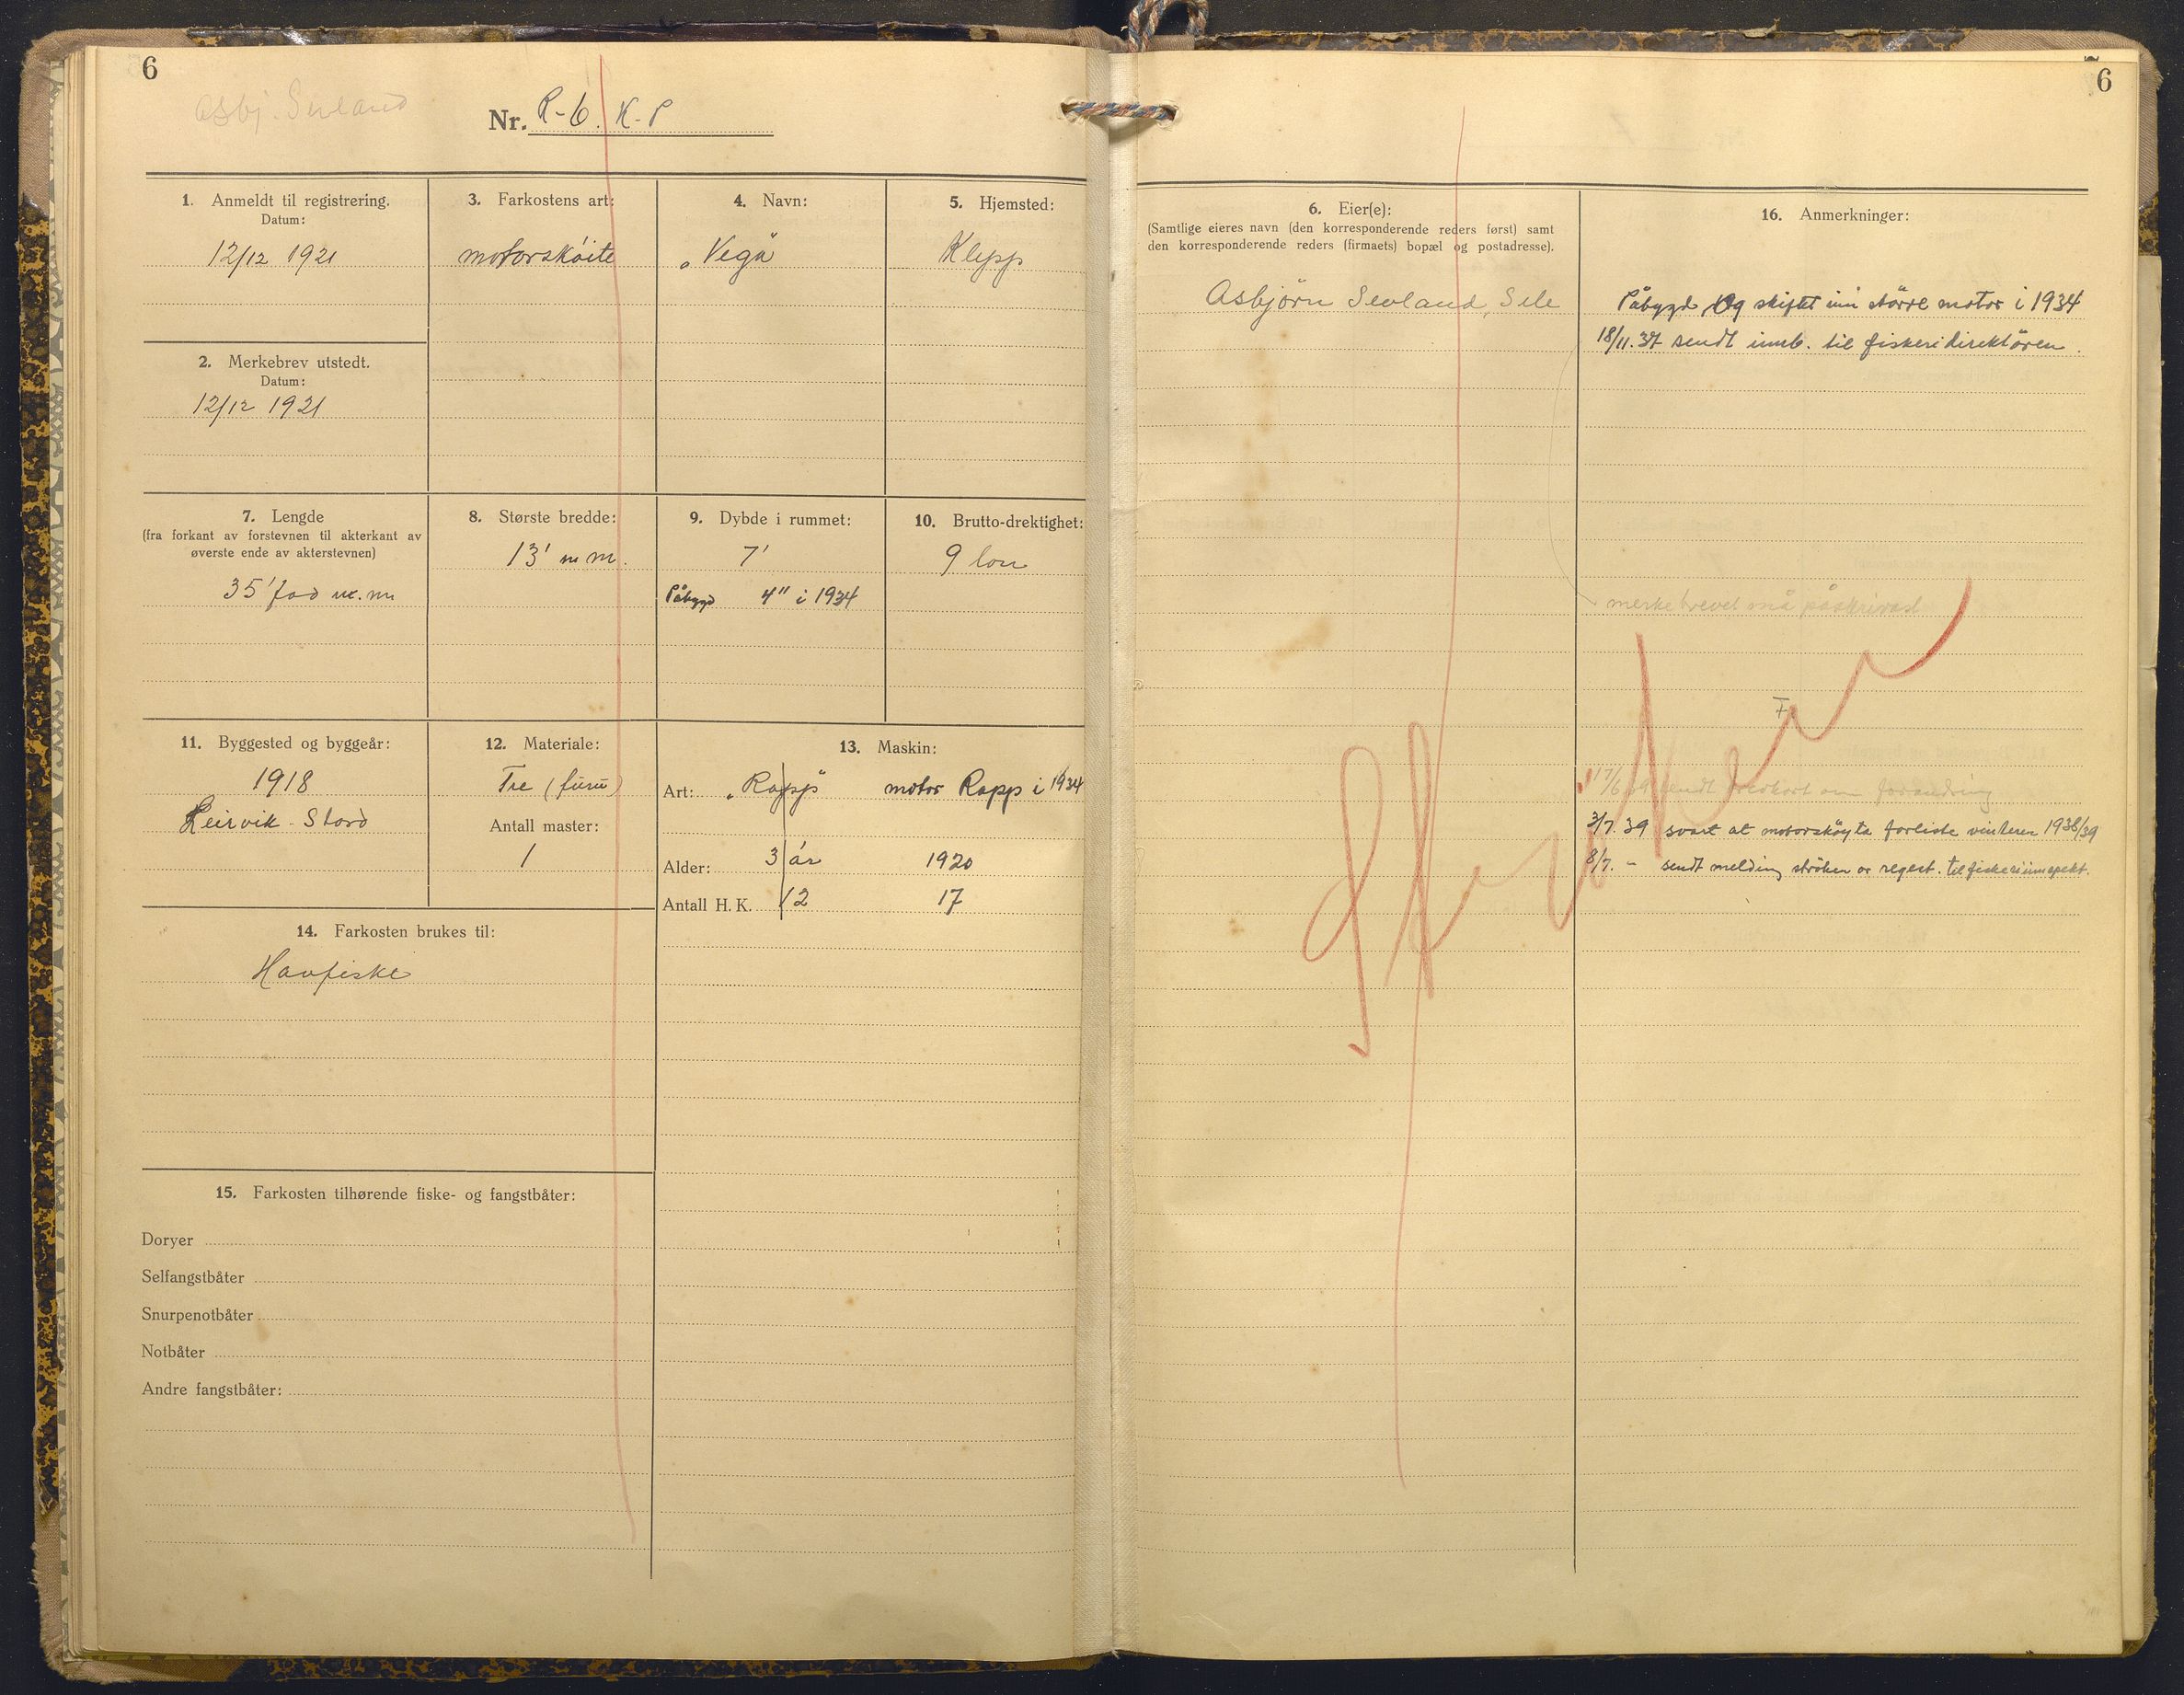 6
Asbj. Sevland
Nr. R-6. K-P
1. Anmeldt til registrering.
Datum:
12/12 1921
2. Merkebrev utstedt.
Datum:
12/12 1921
3. Farkostens art:
motorskøite
4. Navn:
„Vega"
5. Hjemsted:
Klepp
7. Lengde
(fra forkant av forstevnen til akterkant av
øverste ende av akterstevnen)
35' fod m.m
8. Største bredde:
13' m m.
9. Dybde i rummet:
7'
Påbygd 4" i 1934
10. Brutto-drektighet:
9 ton
11. Byggested og byggeår:
1918
Leirvik - Stord
12. Materiale:
Tre (furu)
Antall master:
1
13. Maskin:
Art: „Rapp" motor Rapp i 1934
Alder: 3 år 1920
Antall H. K. 12 17
14. Farkosten brukes til:
Havfiske
15. Farkosten tilhørende fiske- og fangstbåter:
Doryer
Selfangstbåter
Snurpenotbåter
Notbåter
Andre fangstbåter:
6
6. Eier(e):
(Samtlige eieres navn (den korresponderende reders først) samt
den korresponderende reders (firmaets) bopæl og postadresse).
Asbjörn Sevland, Sele
16. Anmerkninger:
Påbygd, Og skiftet inn större motor i 1934
18/11. 37 sendt innb. til fiskeridirektören.
merkebrevet må påskrivast
17/6 39 sendt brevkort om forandring
3/7. 39 svart at motorsköyta forliste vinteren 1938/39
8/7. - sendt melding ströken or regest. til fiskeriinspekt.
Stroken